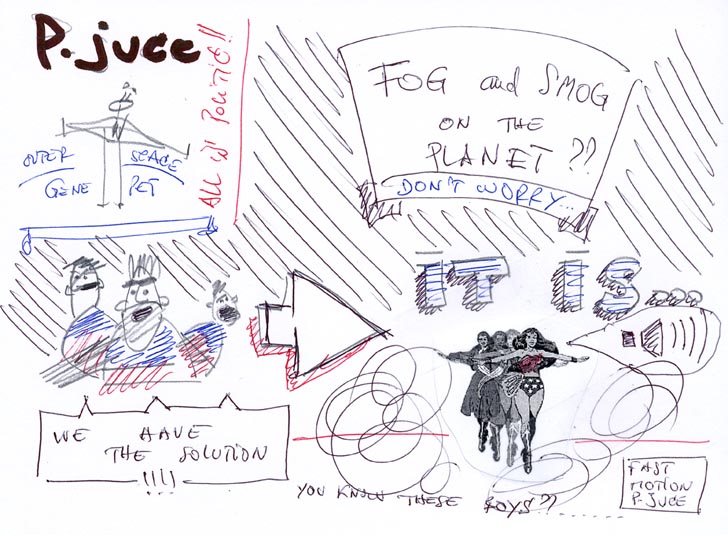 P. juce
ALL in POLITIC!!
OUTER SPACE
GENE PET
FOG and SMOG
ON THE
PLANET??
DON'T WORRY...
IT IS
WE HAVE
THE SOLUTION
!!!!
YOU KNOW THESE BOYS??........
FAST
MOTION
P. JUCE